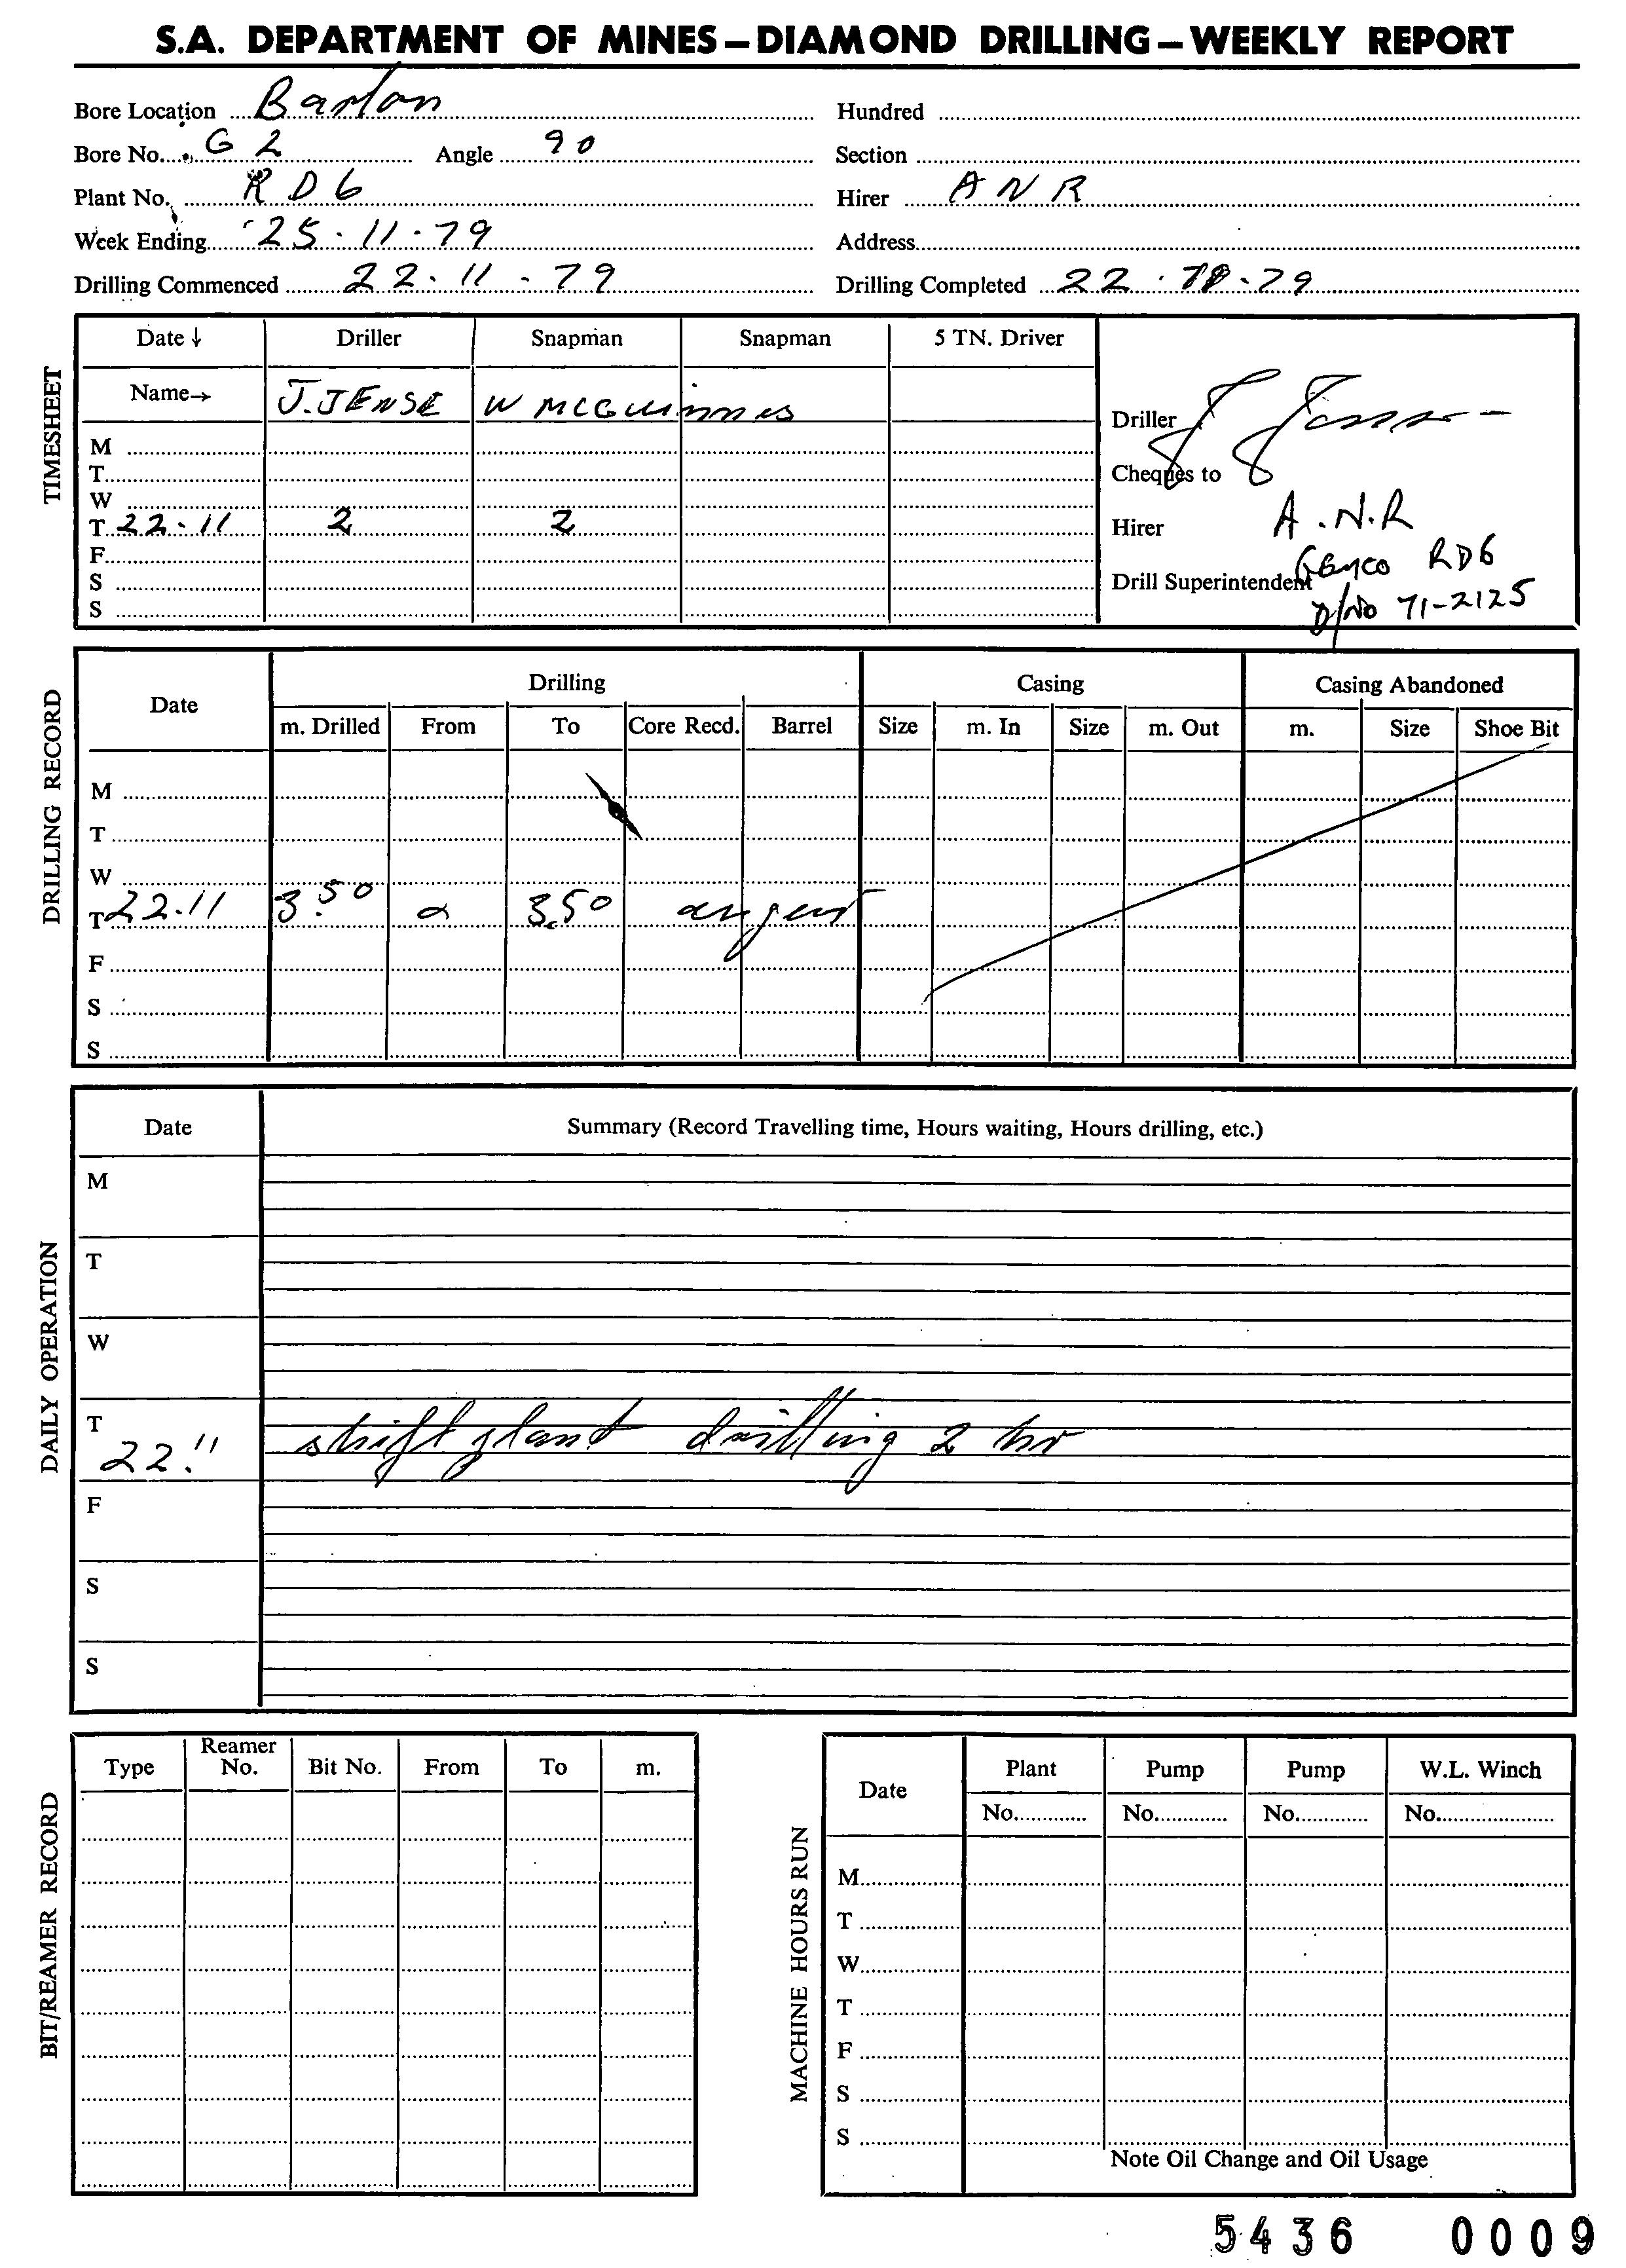 S.A. DEPARTMENT OF MINES – DIAMOND DRILLING – WEEKLY REPORT
Bore Location Barton Hundred
Bore No. G 2 Angle 90 Section
Plant No. R D 6 Hirer A N R
Week Ending 25.11.79 Address
Drilling Commenced 22.11.79 Drilling Completed 22. .79
TIMESHEET
Date ↓ Driller Snapman Snapman 5 TN. Driver
Name→ J. JENSE W MCGUINNES
M
T
W
T 22.11 2 2
F
S
S
Driller
Cheques to
Hirer A.N.R
Drill Superintendent Gemco RD6
D/No 71-2125
DRILLING RECORD
Date Drilling Casing Casing Abandoned
m. Drilled From To Core Recd. Barrel Size m. In Size m. Out m. Size Shoe Bit
M
T
W
T 22.11 3.50 0 3.50 auger
F
S
S
DAILY OPERATION
Date Summary (Record Travelling time, Hours waiting, Hours drilling, etc.)
M
T
W
T
22.11 shift plant drilling 2 hr
F
S
S
BIT/REAMER RECORD
Type Reamer No. Bit No. From To m.
MACHINE HOURS RUN
Date Plant Pump Pump W.L. Winch
No. No. No. No.
M
T
W
T
F
S
S
Note Oil Change and Oil Usage
5436 0009